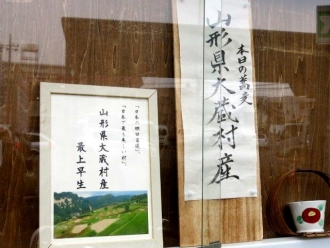 本日の蕎麦
山形県大蔵村産
「日本の棚田百選」
「日本で最も美しい村」
山形県大蔵村産
最上早生